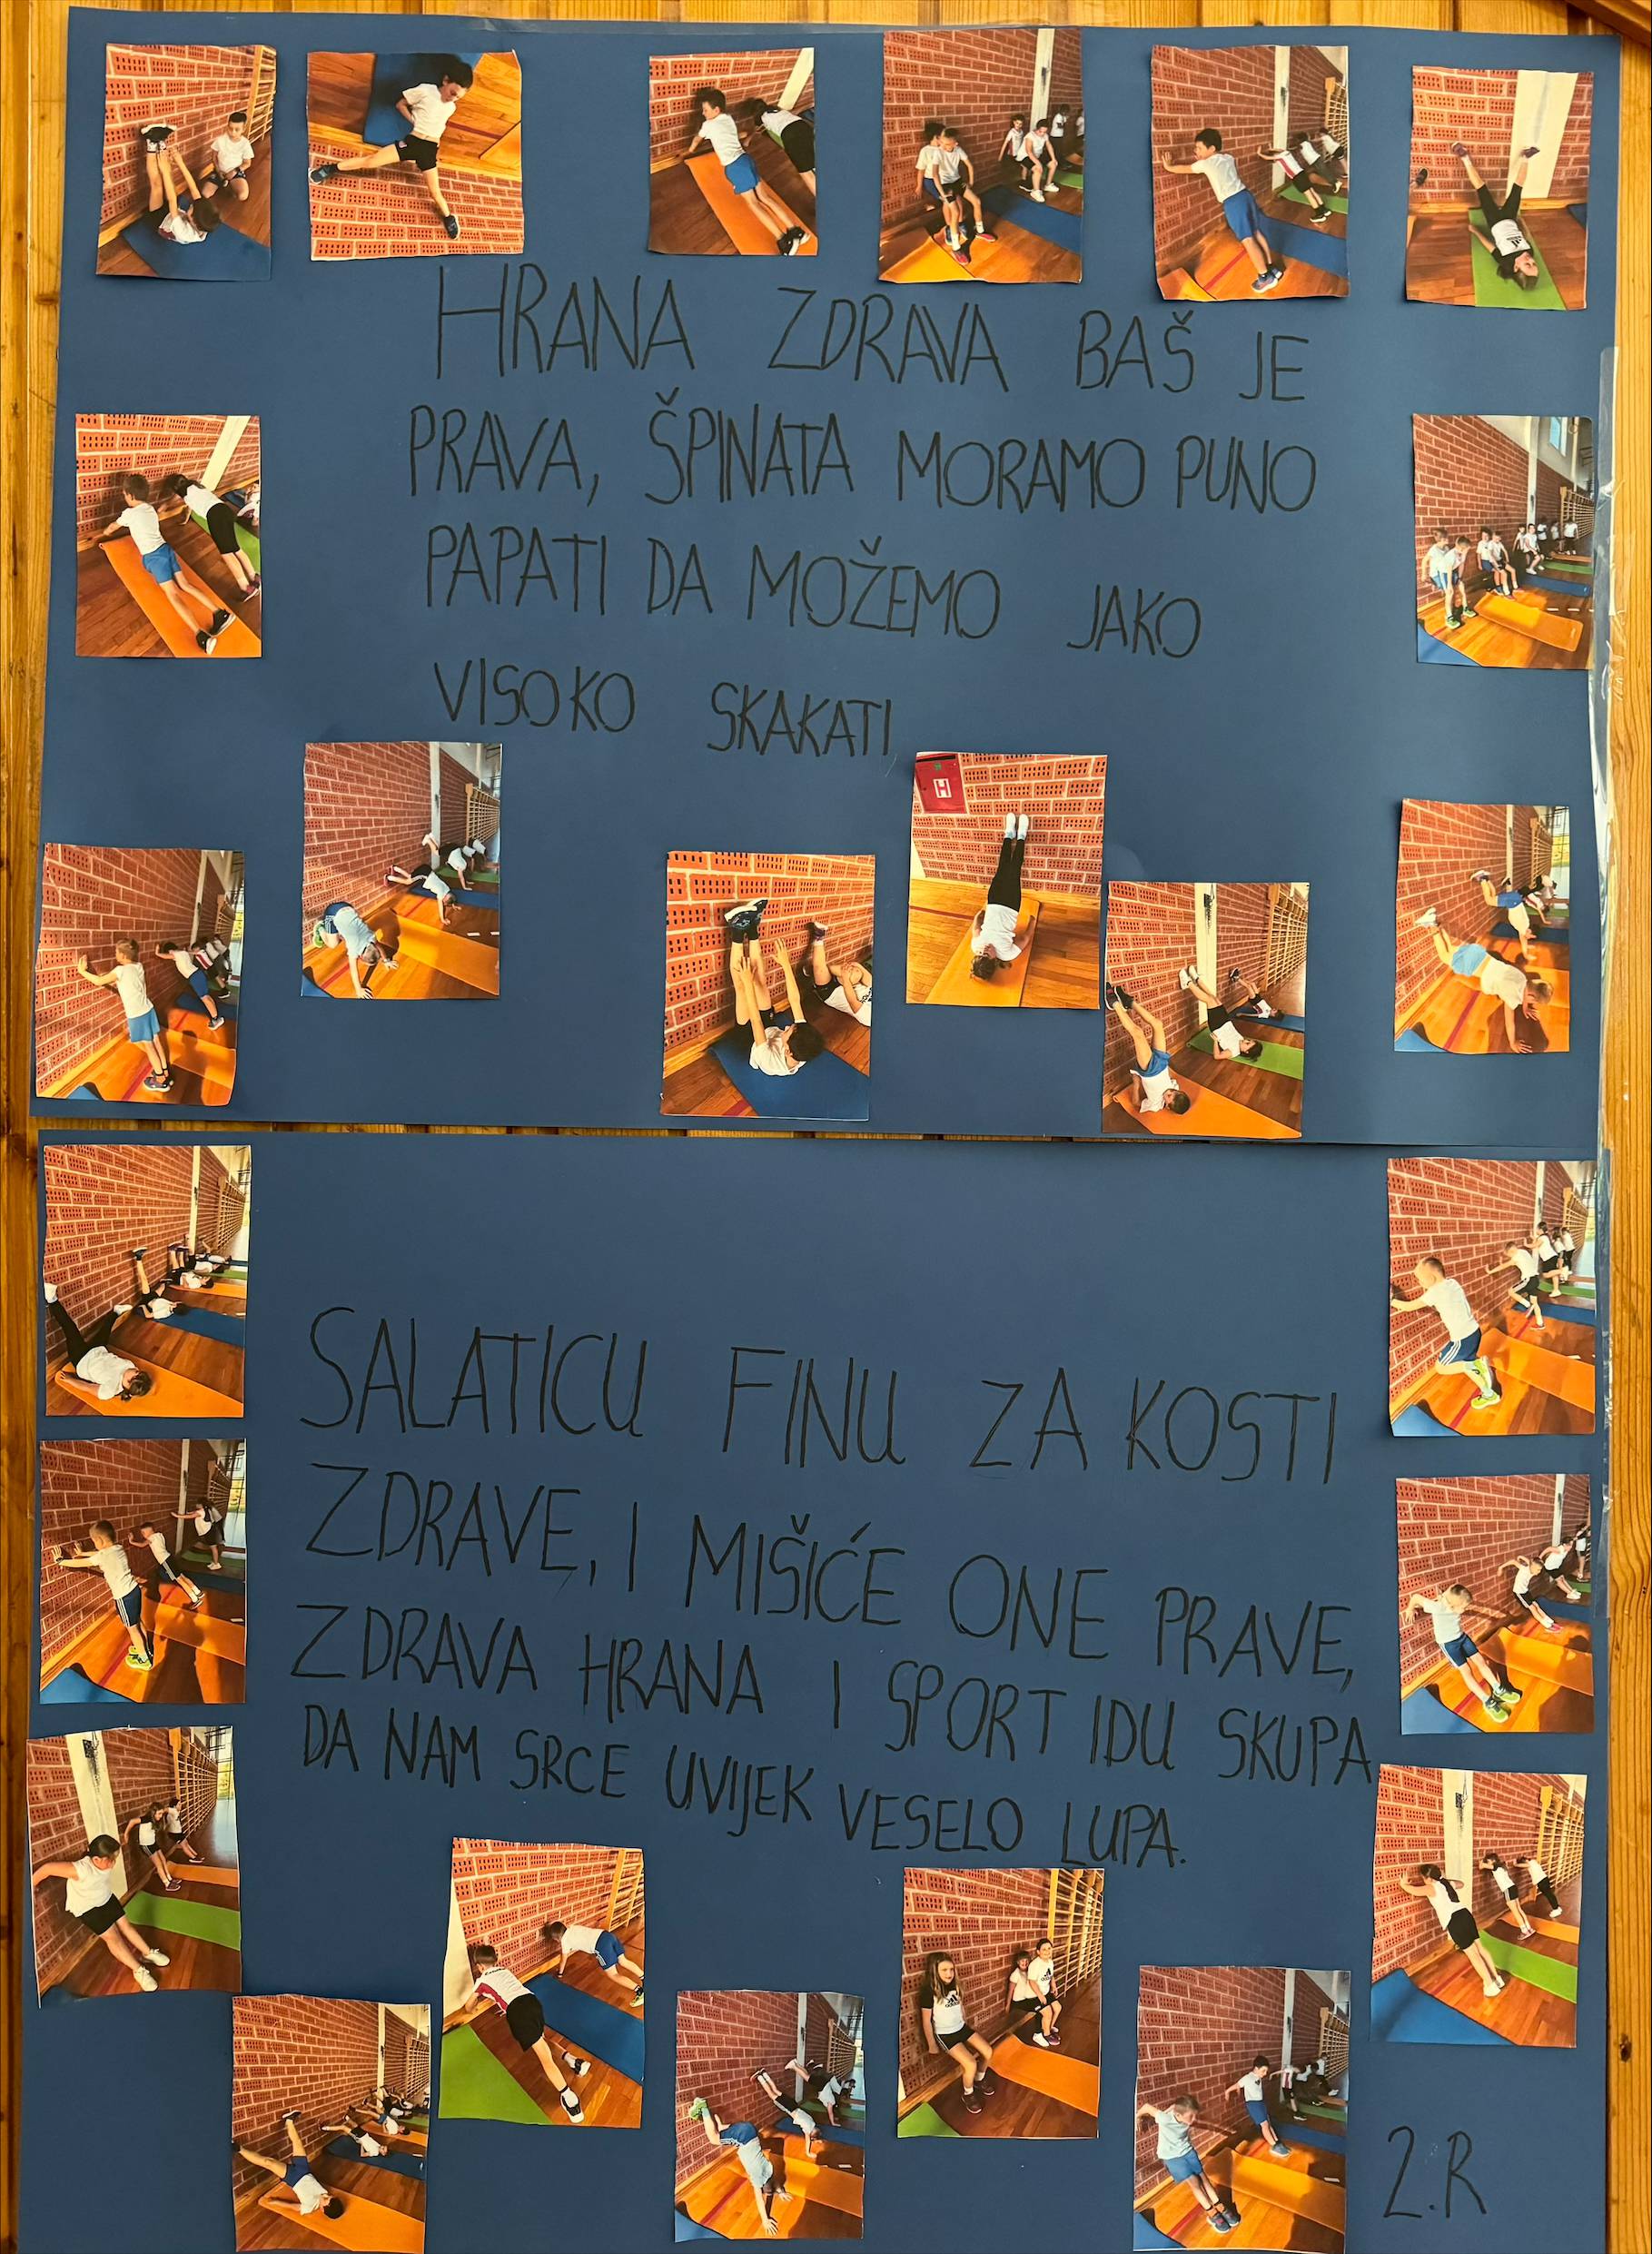 HRANA ZDRAVA BAŠ JE
PRAVA, ŠPINATA MORAMO PUNO
PAPATI DA MOŽEMO JAKO
VISOKO SKAKATI
H
SALATICU FINU ZA KOSTI
ZDRAVE, I MIŠIĆE ONE PRAVE,
ZDRAVA HRANA I SPORT IDU SKUPA
DA NAM SRCE UVIJEK VESELO LUPA.
2.R